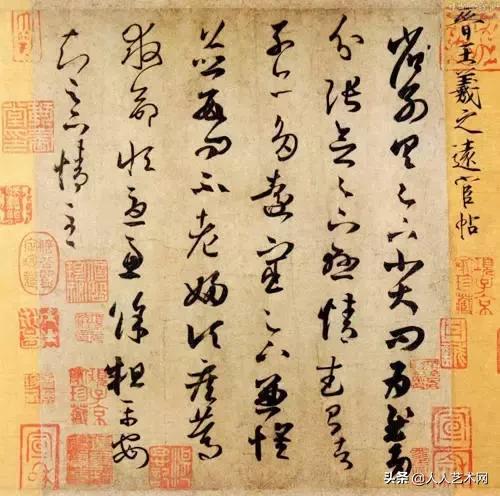 晉王羲之遠宦帖
省別具足下小大問為慰多
分張念足下懸情武昌諸
子亦多遠宦足下兼懷
並數問不老婦頃疾篤
救命恒憂慮餘粗平安
知足下情至
头条 @人人艺术网